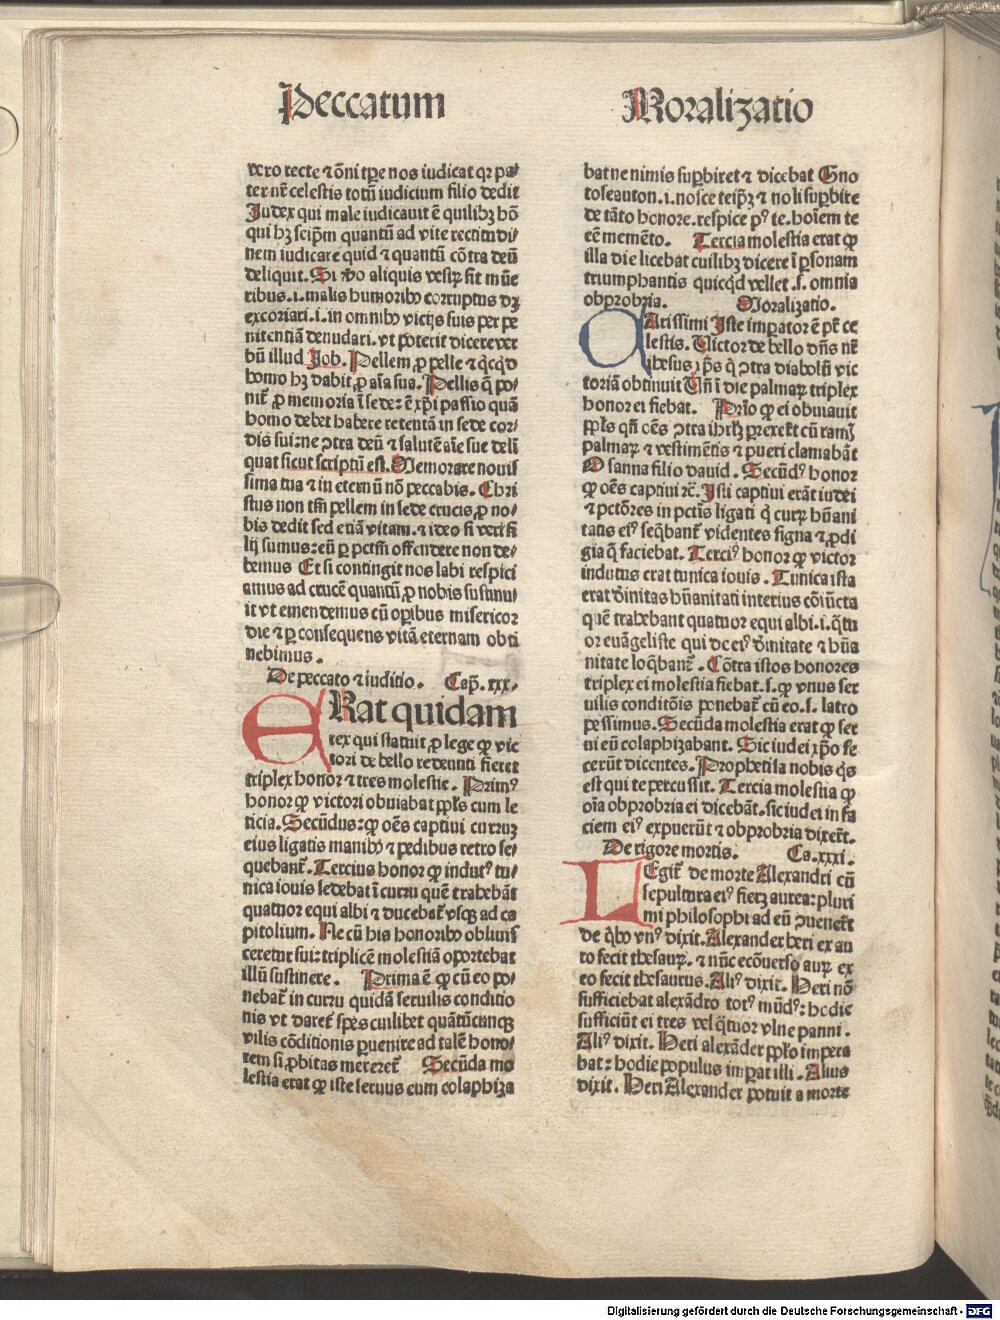 Peccatum
Moralizatio
vero recte ⁊ õni tp̃e nos iudicat qꝛ pa⸗
ter nr̃ celestis totũ iudicium filio dedit
Judex qui male iudicauit ẽ quilibꝫ hõ
qui hꝫ seip̃m quantũ ad vite rectitudi⸗
nem iudicare quid ⁊ quantũ cõtra deũ
deliquit. Si v̾o aliquis vestꝝ sit mũe
ribus .i. malis humoribꝰ corruptus dꝫ
excoriari .i. in omnibꝰ vicijs suis per pe
nitentiã denudari. vt poterit dicere ver
bũ illud Job. Pellem ꝓ pelle ⁊ q̃cq̃d
homo hꝫ dabit ꝓ aĩa sua. Pellis q̃ po⸗
nit̃ ꝓ memoria ĩ sede: ẽ xp̃i passio quã
homo debet habere retentã in sede cor⸗
dis sui: ne ↄtra deũ ⁊ salutẽ aĩe sue delĩ
quat sicut scriptũ est. Memorare nouis
sima tua ⁊ in eternũ nõ peccabis. Chri
stus non tm̃ pellem in sede crucis ꝓ no⸗
bis dedit sed etiã vitam. ⁊ ideo si veri fi
lij sumus: eũ ꝑ pctm̃ offendere non de⸗
bemus Et si contingit nos labi respici
amus ad crucẽ quantũ ꝓ nobis sustinu⸗
it vt emendemus cũ oꝑibus misericor
die ⁊ ꝑ consequens vitã eternam obti
nebimus.
De peccato ⁊ iuditio. Cap̃. xxx.
ERat quidam
rex qui statuit ꝓ lege qꝙ vic
tori de bello redeunti fieret
triplex honor ⁊ tres molestie. Primꝰ
honor ꝙ victori obuiabat pp̃ls cum le
ticia. Secũdus: ꝙ oẽs captiui curruꝫ
eius ligatis manibꝰ ⁊ pedibus retro se⸗
quebant̃. Tercius honor ꝙ indutꝰ tu⸗
nica iouis sedebat ĩ curru quẽ trahebãt
quatuor equi albi ⁊ ducebat̃ vsqꝫ ad ca
pitolium. Ne cũ his honoribꝰ obliuis
ceretur sui: triplicẽ molestiã oportebat
illũ sustinere. Prima ẽ ꝙ cũ eo po⸗
nebat̃ in curru quidã seruilis conditio
nis vt daret̃ spes cuilibet quãtũcunqꝫ
vilis cõditionis ꝑuenire ad talẽ hono⸗
rem si ꝓbitas mereret̃ Secũda mo
lestia erat ꝙ iste seruus eum colaphiza
bat ne nimis suꝑbiret ⁊ dicebat Gno
toseauton .i. nosce teip̃ꝫ ⁊ noli suꝑbire
de tãto honore. respice pꝰ te. hoĩem te
eẽ memẽto. Tercia molestia erat ꝙ
illa die licebat cuilibꝫ dicere ĩ ꝑsonam
triumphantis quicq̃d vellet .s. omnia
obprobria. Moralizatio.
CArissimi Iste imꝑator ẽ pr̃ ce
lestis. Victor de bello dñs nr̃
ihesus xp̃s q̃ ↄtra diabolũ vic
toriã obtinuit Vñ ĩ die palmaꝝ triplex
honor ei fiebat. Prĩo ꝙ ei obuiauit
pp̃ls qñ oẽs ↄtra ihrl̃ꝫ ꝑrexer̃t cũ ramĩ
palmaꝝ ⁊ vestimẽtis ⁊ pueri clamabãt
O sanna filio dauid. Secũdꝰ honor
ꝙ oẽs captiui ⁊c̃. Isti captiui erãt iudei
⁊ pctõres in pctĩs ligati q̃ curꝝ hũani
tatis eiꝰ seq̃bant̃ videntes signa ⁊ ꝓdi
gia q̃ faciebat. Terciꝰ honor ꝙ victor
indutus erat tunica iouis. Tunica ista
erat d̾initas hũanitati interius cõiũcta
quẽ trahebant quatuor equi albi .i. q̃tu
or euãgeliste qui de eiꝰ d̾initate ⁊ hũa
nitate loq̃bant̃. Cõtra istos honores
triplex ei molestia fiebat .s. ꝙ vnus ser
uilis conditõis ponebat̃ cũ eo .s. latro
pessimus. Secũda molestia erat ꝙ ser
ui eũ colaphizabant. Sic iudei xp̃o fe
cerũt dicentes. Prophetisa nobis q̃s
est qui te percussit. Tercia molestia ꝙ
oĩa obprobria ei dicebãt. sic iudei in fa
ciem eiꝰ expuerũt ⁊ obprobria dixer̃t.
De rigore mortis. Ca. xxxi.
LEgit̃ de morte Alexandri cũ
sepultura eiꝰ fieꝫ aurea: pluri
mi philosophi ad eũ ↄuenert̃
de q̃bꝰ vnꝰ dixit. Alexander heri ex au
ro fecit thesauꝝ. ⁊ nũc ecõuerso auꝝ ex
eo fecit thesaurus. Aliꝰ dixit. Heri nõ
sufficiebat alexãdro totꝰ mũdꝰ: hodie
sufficiũt ei tres vel q̃tuor vlne panni.
Aliꝰ dixit. Heri alexãder pp̃lo impera
bat: hodie populus imꝑat illi. Alius
dixit. Heri Alexander potuit a morte
Digitalisierung gefördert durch die Deutsche Forschungsgemeinschaft - DFG